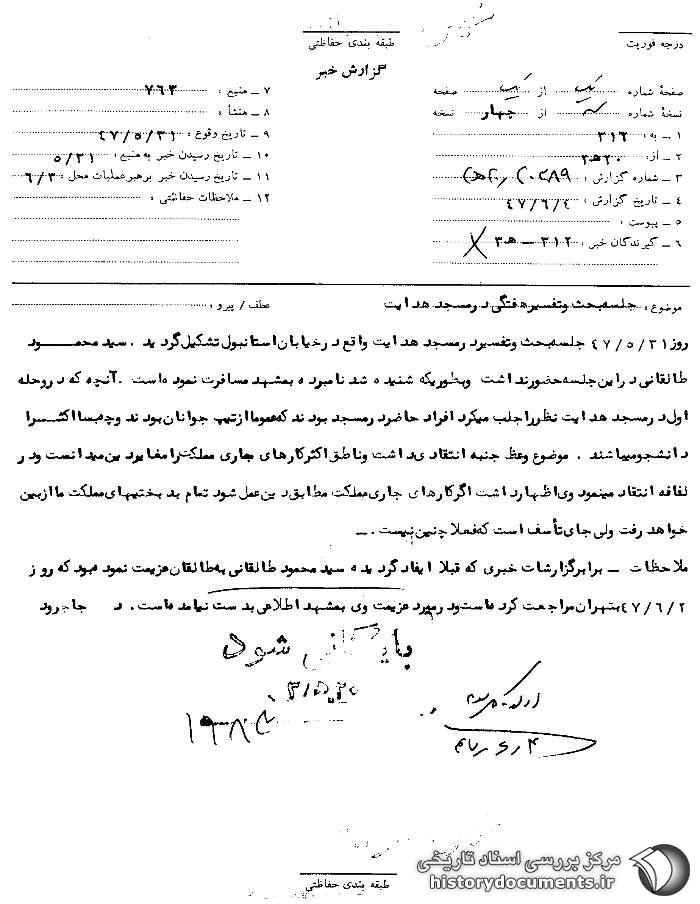 درجه فوریت
طبقه بندی حفاظتی
گزارش خبر
صفحهٔ شماره یک از یک صفحه
نسخهٔ شماره سه از چهار نسخه
۱ ـ به : ۳۱۶
۲ ـ از : ۲۰ه۳
۳ ـ شماره گزارش :
۴ ـ تاریخ گزارش : ۴۷/۶/۴
۵ ـ پیوست :
۶ ـ گیرندگان خبر : ۳۱۲ ـ ه۳
۷ ـ منبع : ۷۶۳
۸ ـ منشأ :
۹ ـ تاریخ وقوع : ۴۷/۵/۳۱
۱۰ ـ تاریخ رسیدن خبر به منبع : ۵/۳۱
۱۱ ـ تاریخ رسیدن خبر برهبر عملیات محل : ۶/۳
۱۲ ـ ملاحظات حفاظتی :
موضوع : جلسه بحث و تفسیر هفتگی در مسجد هدایت
عطف / پیرو :
روز ۴۷/۵/۳۱ جلسه بحث و تفسیر در مسجد هدایت واقع در خیابان استانبول تشکیل گردید . سید محمود
طالقانی در این جلسه حضور نداشت و بطوریکه شنیده شد نامبرده بمشهد مسافرت نموده است . آنچه که در وحله
اول در مسجد هدایت نظر را جلب میکرد افراد حاضر در مسجد بودند که عموما از تیپ جوانان بودند و چه بسا اکثرا
دانشجو میباشند . موضوع وعظ جنبه انتقادی داشت و ناطق اکثر کارهای جاری مملکت را مغایر دین میدانست و در
لفافه انتقاد مینمود وی اظهار داشت اگر کارهای جاری مملکت مطابق دین عمل شود تمام بدبختیهای مملکت ما از بین
خواهد رفت ولی جای تأسف است که فعلا چنین نیست . ـ
ملاحظات ـ برابر گزارشات خبری که قبلا ایفاد گردیده سید محمود طالقانی به طالقان عزیمت نموده بود که روز
۴۷/۶/۲ بتهران مراجعت کرده است و در مورد عزیمت وی بمشهد اطلاعی بدست نیامده است . د جاجرود
بایگانی شود
طبقه بندی حفاظتی
مرکز بررسی اسناد تاریخی
historydocuments.ir